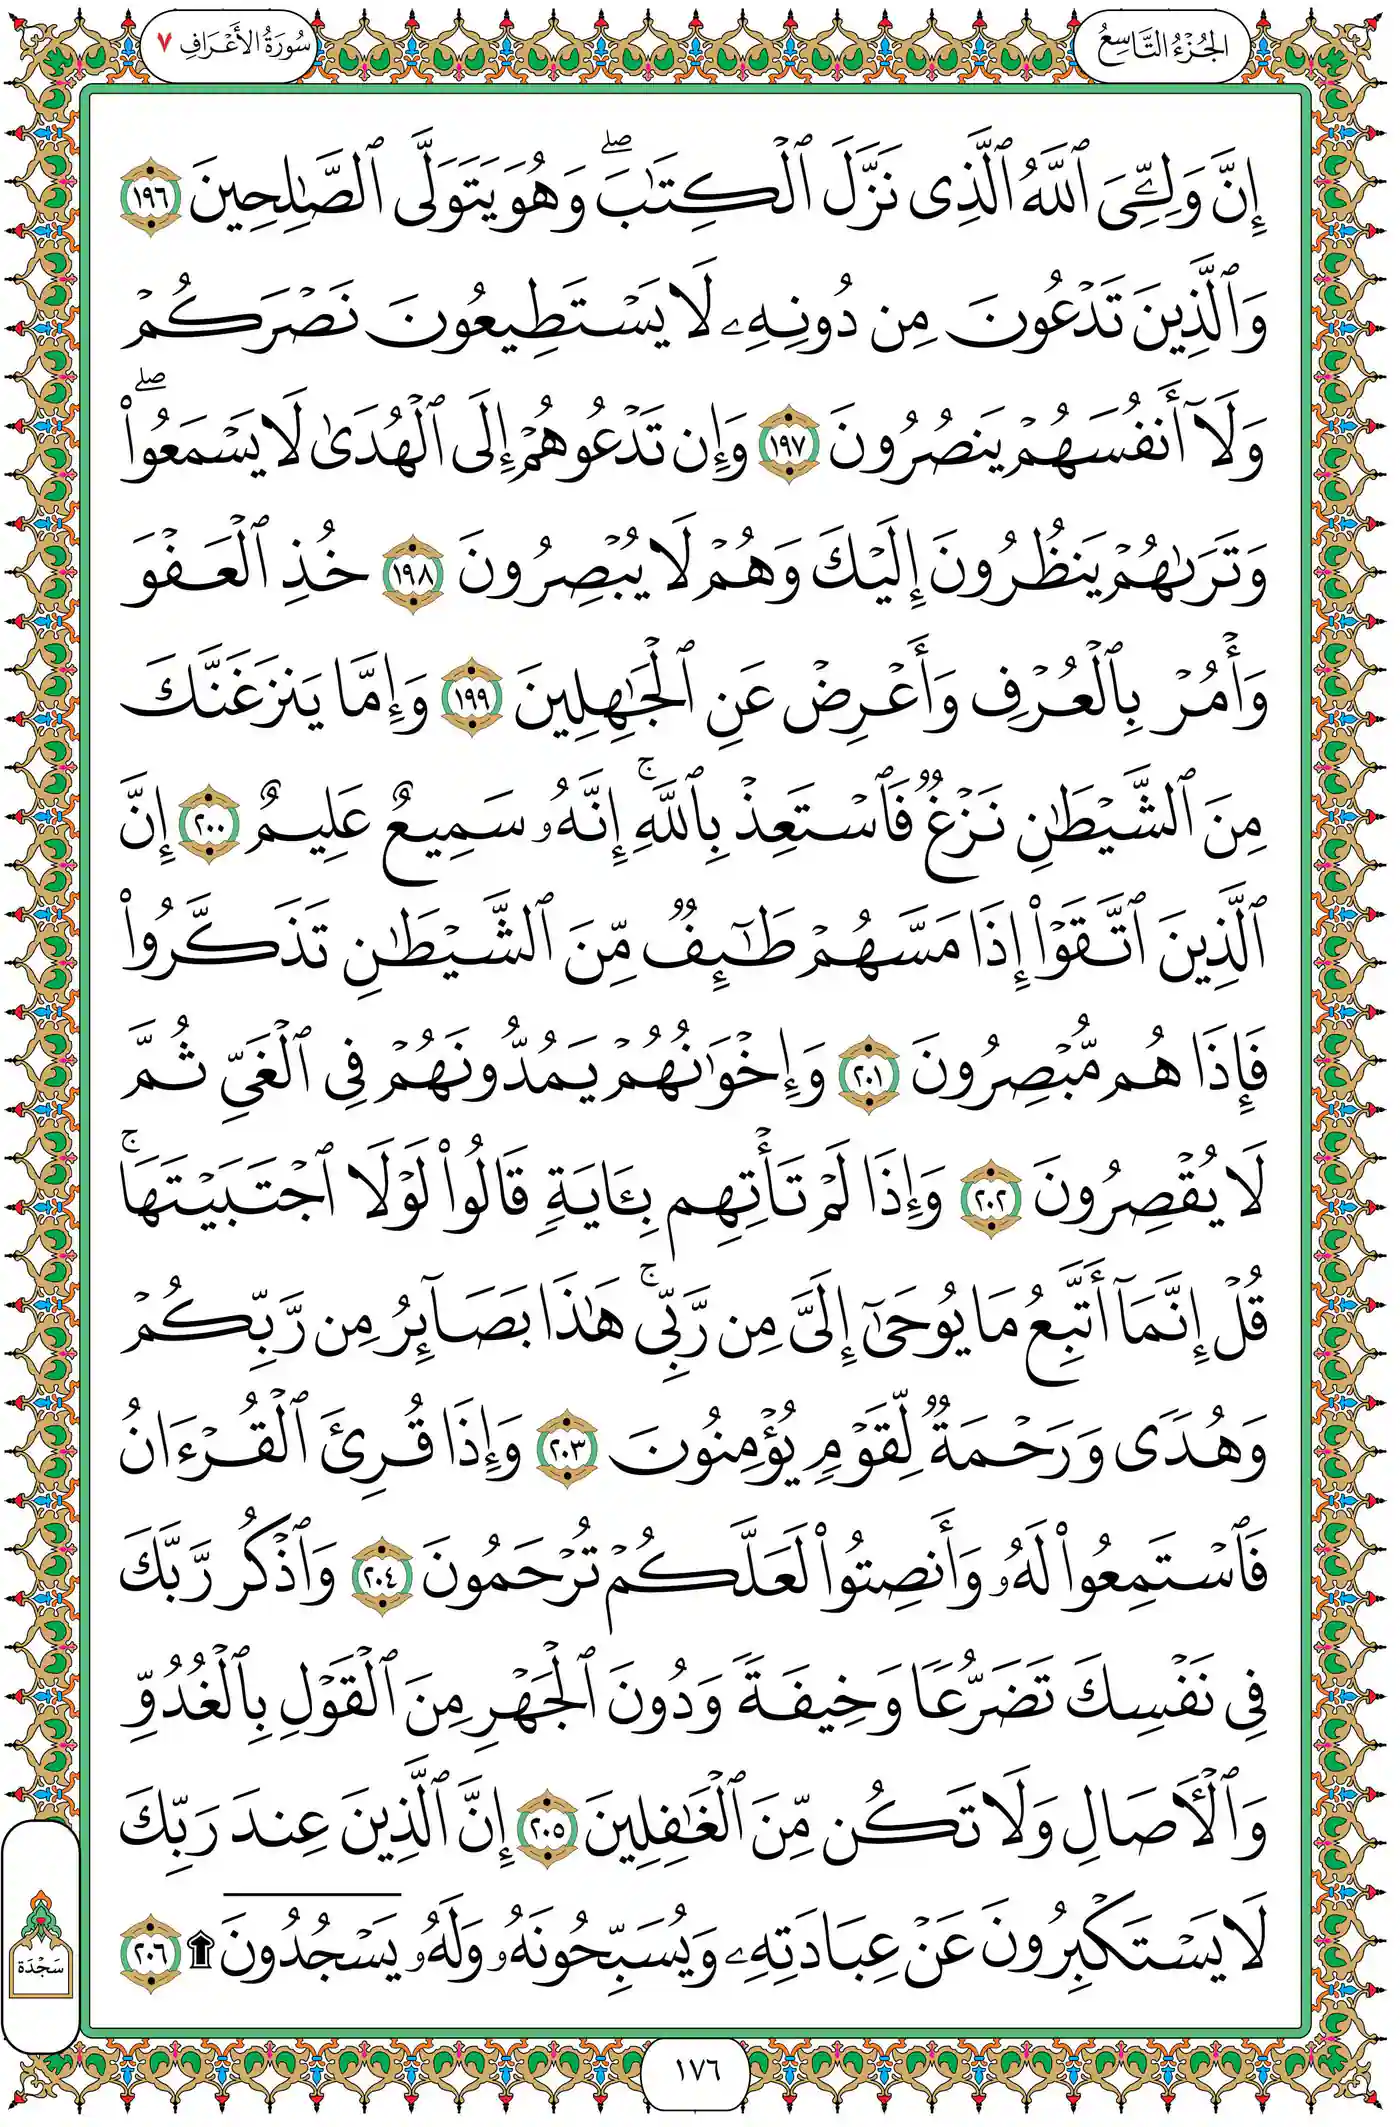 الجُزْءُ التَّاسِعُ
سُورَةُ الأَعْرَافِ ٧
إِنَّ وَلِـِّۧيَ ٱللَّهُ ٱلَّذِى نَزَّلَ ٱلْكِتَٰبَ ۖ وَهُوَ يَتَوَلَّى ٱلصَّٰلِحِينَ ١٩٦
وَٱلَّذِينَ تَدْعُونَ مِن دُونِهِۦ لَا يَسْتَطِيعُونَ نَصْرَكُمْ
وَلَآ أَنفُسَهُمْ يَنصُرُونَ ١٩٧ وَإِن تَدْعُوهُمْ إِلَى ٱلْهُدَىٰ لَا يَسْمَعُوا۟ ۖ
وَتَرَىٰهُمْ يَنظُرُونَ إِلَيْكَ وَهُمْ لَا يُبْصِرُونَ ١٩٨ خُذِ ٱلْعَفْوَ
وَأْمُرْ بِٱلْعُرْفِ وَأَعْرِضْ عَنِ ٱلْجَٰهِلِينَ ١٩٩ وَإِمَّا يَنزَغَنَّكَ
مِنَ ٱلشَّيْطَٰنِ نَزْغٌ فَٱسْتَعِذْ بِٱللَّهِ ۚ إِنَّهُۥ سَمِيعٌ عَلِيمٌ ٢٠٠ إِنَّ
ٱلَّذِينَ ٱتَّقَوْا۟ إِذَا مَسَّهُمْ طَٰٓئِفٌ مِّنَ ٱلشَّيْطَٰنِ تَذَكَّرُوا۟
فَإِذَا هُم مُّبْصِرُونَ ٢٠١ وَإِخْوَٰنُهُمْ يَمُدُّونَهُمْ فِى ٱلْغَىِّ ثُمَّ
لَا يُقْصِرُونَ ٢٠٢ وَإِذَا لَمْ تَأْتِهِم بِـَٔايَةٍ قَالُوا۟ لَوْلَا ٱجْتَبَيْتَهَا ۚ
قُلْ إِنَّمَآ أَتَّبِعُ مَا يُوحَىٰٓ إِلَىَّ مِن رَّبِّى ۚ هَٰذَا بَصَآئِرُ مِن رَّبِّكُمْ
وَهُدًى وَرَحْمَةٌ لِّقَوْمٍ يُؤْمِنُونَ ٢٠٣ وَإِذَا قُرِئَ ٱلْقُرْءَانُ
فَٱسْتَمِعُوا۟ لَهُۥ وَأَنصِتُوا۟ لَعَلَّكُمْ تُرْحَمُونَ ٢٠٤ وَٱذْكُر رَّبَّكَ
فِى نَفْسِكَ تَضَرُّعًا وَخِيفَةً وَدُونَ ٱلْجَهْرِ مِنَ ٱلْقَوْلِ بِٱلْغُدُوِّ
وَٱلْـَٔاصَالِ وَلَا تَكُن مِّنَ ٱلْغَٰفِلِينَ ٢٠٥ إِنَّ ٱلَّذِينَ عِندَ رَبِّكَ
لَا يَسْتَكْبِرُونَ عَنْ عِبَادَتِهِۦ وَيُسَبِّحُونَهُۥ وَلَهُۥ يَسْجُدُونَ ۩ ٢٠٦
سَجْدَة
١٧٦